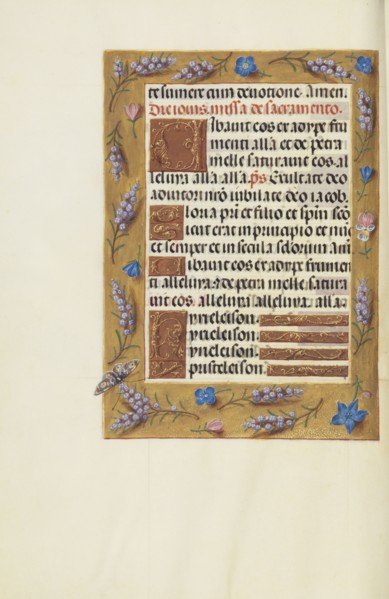 te sumere cum deuotione. Amen.
Die iouis. missa de sacramento.
Cibauit eos ex adipe fru
menti alla et de petra
melle saturauit eos. al
leluya alla alla. ps Exultate deo
adiutori nro iubilate deo iacob.
Gloria pri et filio et spui sco
Sicut erat in principio et nuc
et semper et in secula seculorum am
Cibauit eos ex adipe frumen
ti alleluya. et de petra melle satura
uit eos. alleluya alleluya. alla.
Kyrieleison.
Kyrieleison.
Kyrieleison.
Xpristeleison.